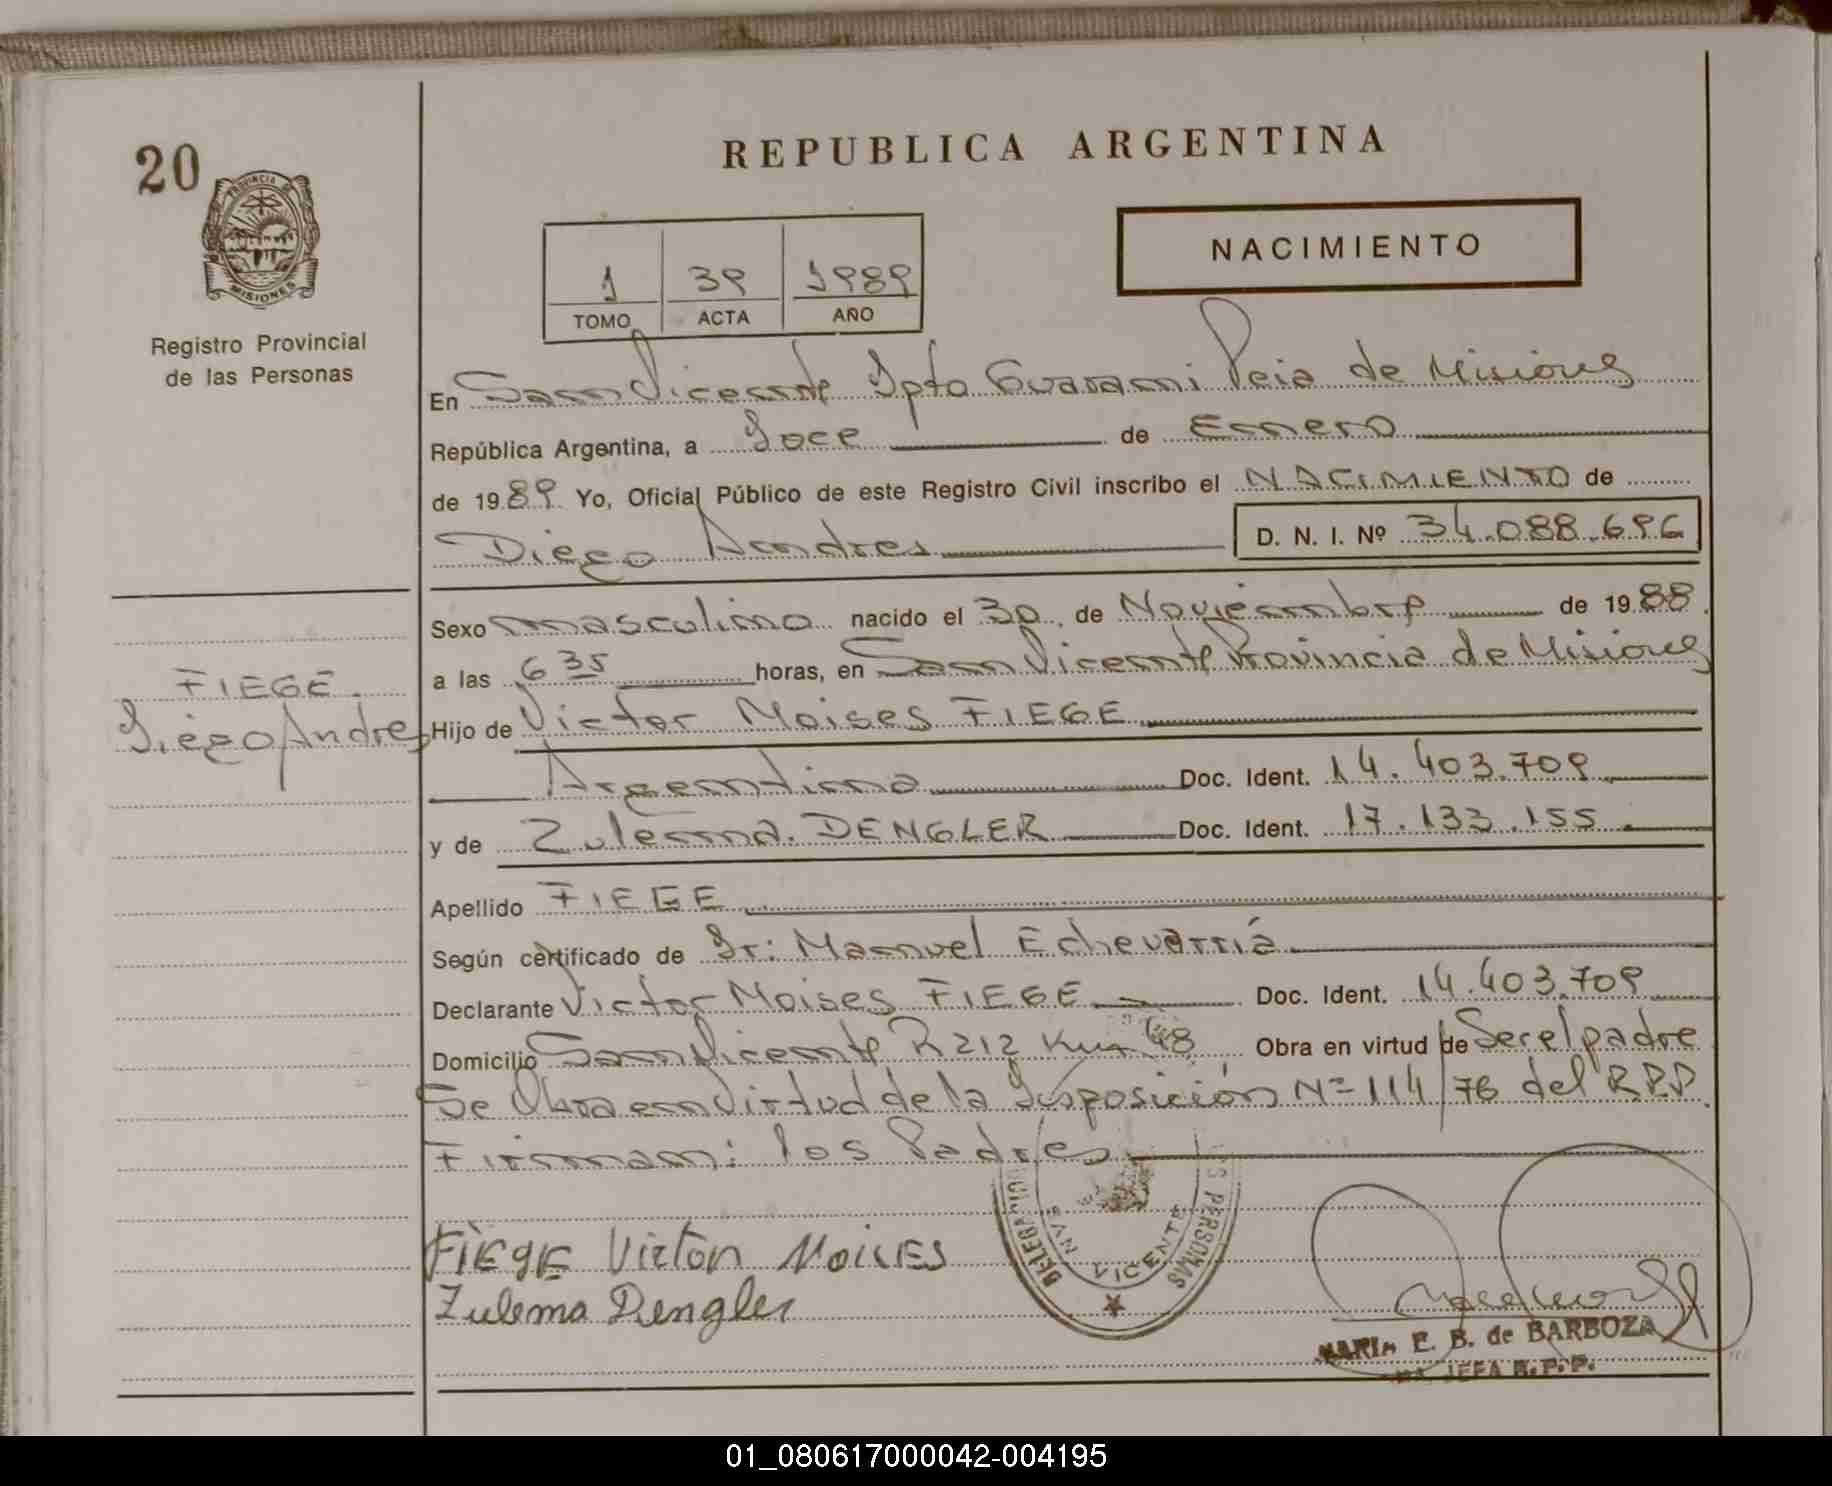 REPUBLICA ARGENTINA
20
PROVINCIA DE
MISIONES
Registro Provincial
de las Personas
NACIMIENTO
1 39 1989
TOMO ACTA AÑO
En San Vicente Dpto Guarani Pcia de Misiones
República Argentina, a Doce de Enero
de 1989 Yo, Oficial Público de este Registro Civil inscribo el NACIMIENTO de
Diego Andres D. N. I. Nº 34.088.696
Sexo masculino nacido el 30 de Noviembre de 1988
a las 6 35 horas, en San Vicente Provincia de Misiones
FIEGE
Diego Andres
Hijo de Victor Moises FIEGE
Argentino Doc. Ident. 14.403.709
y de Zulema DENGLER Doc. Ident. 17.133.155
Apellido FIEGE
Según certificado de Dr: Manuel Echevarría
Declarante Victor Moises FIEGE Doc. Ident. 14.403.709
Domicilio San Vicente R 212 Km 48 Obra en virtud de Ser el padre
Se Obra en Virtud de la Disposición Nº 114/76 del R.P.P.
Firman: los Padres
FiEgE Victor MoisES
Zulema Dengler
VICENTE
PERSONAS
MARIA E. B. de BARBOZA
JEFA R.P.P.
01_080617000042-004195